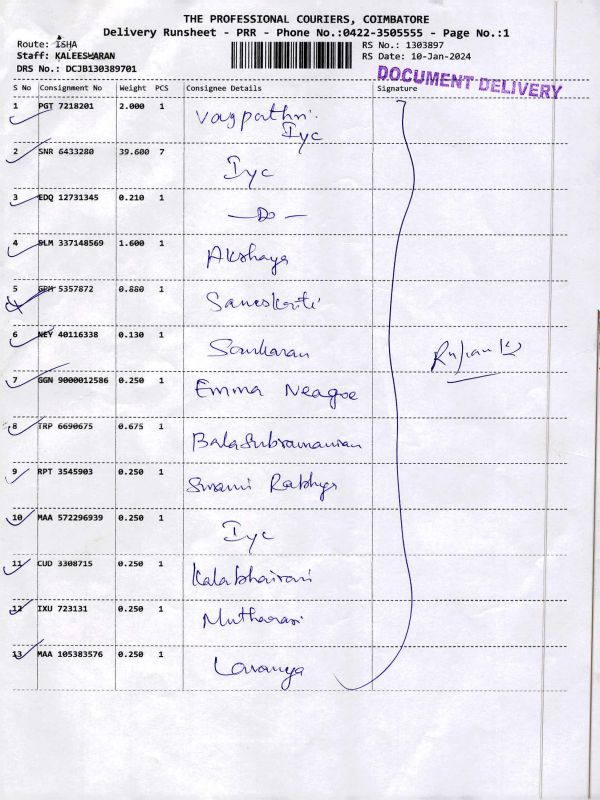 THE PROFESSIONAL COURIERS, COIMBATORE
Delivery Runsheet - PRR - Phone No.:0422-3505555 - Page No.:1
Route: ISHA
Staff: KALEESWARAN
DRS No.: DCJB130389701
RS No.: 1303897
RS Date: 10-Jan-2024
DOCUMENT DELIVERY
S No Consignment No Weight PCS Consignee Details Signature
1 PGT 7218201 2.000 1
Iyc
2 SNR 6433280 39.600 7 Iyc
3 EDQ 12731345 0.210 1 —Do—
4 BLM 337148569 1.600 1 Akshaya
5 GPM 5357872 0.880 1 Sanskriti
6 NEY 40116338 0.130 1 Sankaran
7 GGN 9000012586 0.250 1 Emma Neagoe
8 TRP 6690675 0.675 1 Balasubramanian
9 RPT 3545903 0.250 1 Swami
10 MAA 572296939 0.250 1 Iyc
11 CUD 3308715 0.250 1 Kalabhairavi
12 IXU 723131 0.250 1 Mutharasi
13 MAA 105383576 0.250 1 Lavanya